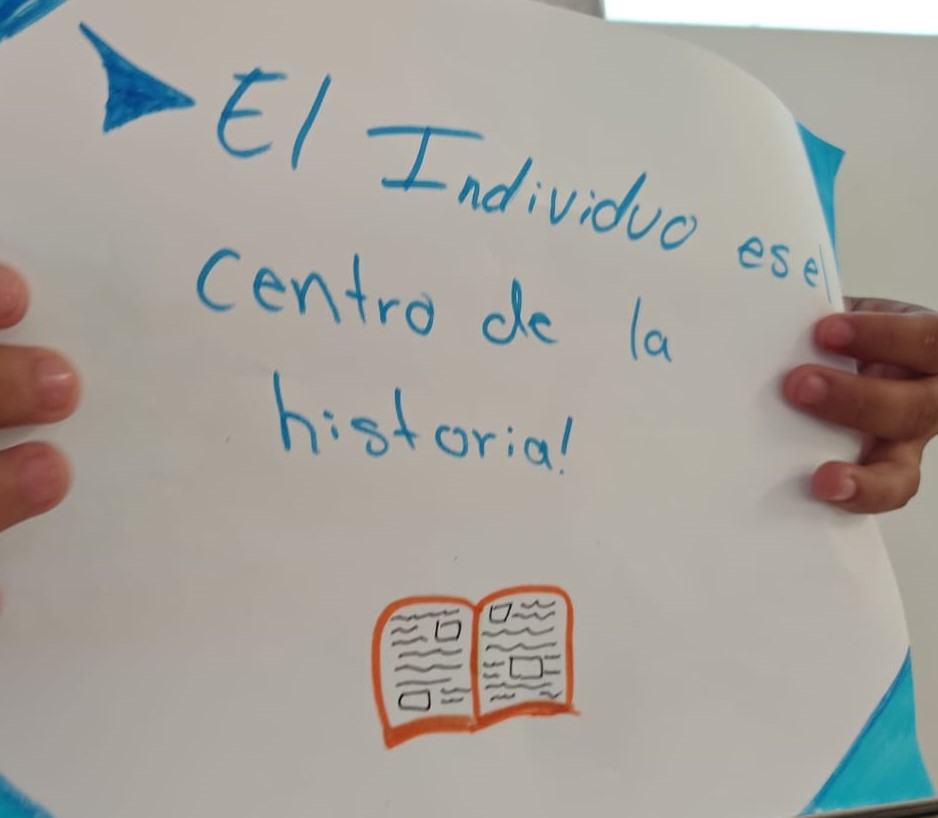 El Individuo es el
centro de la
historia!